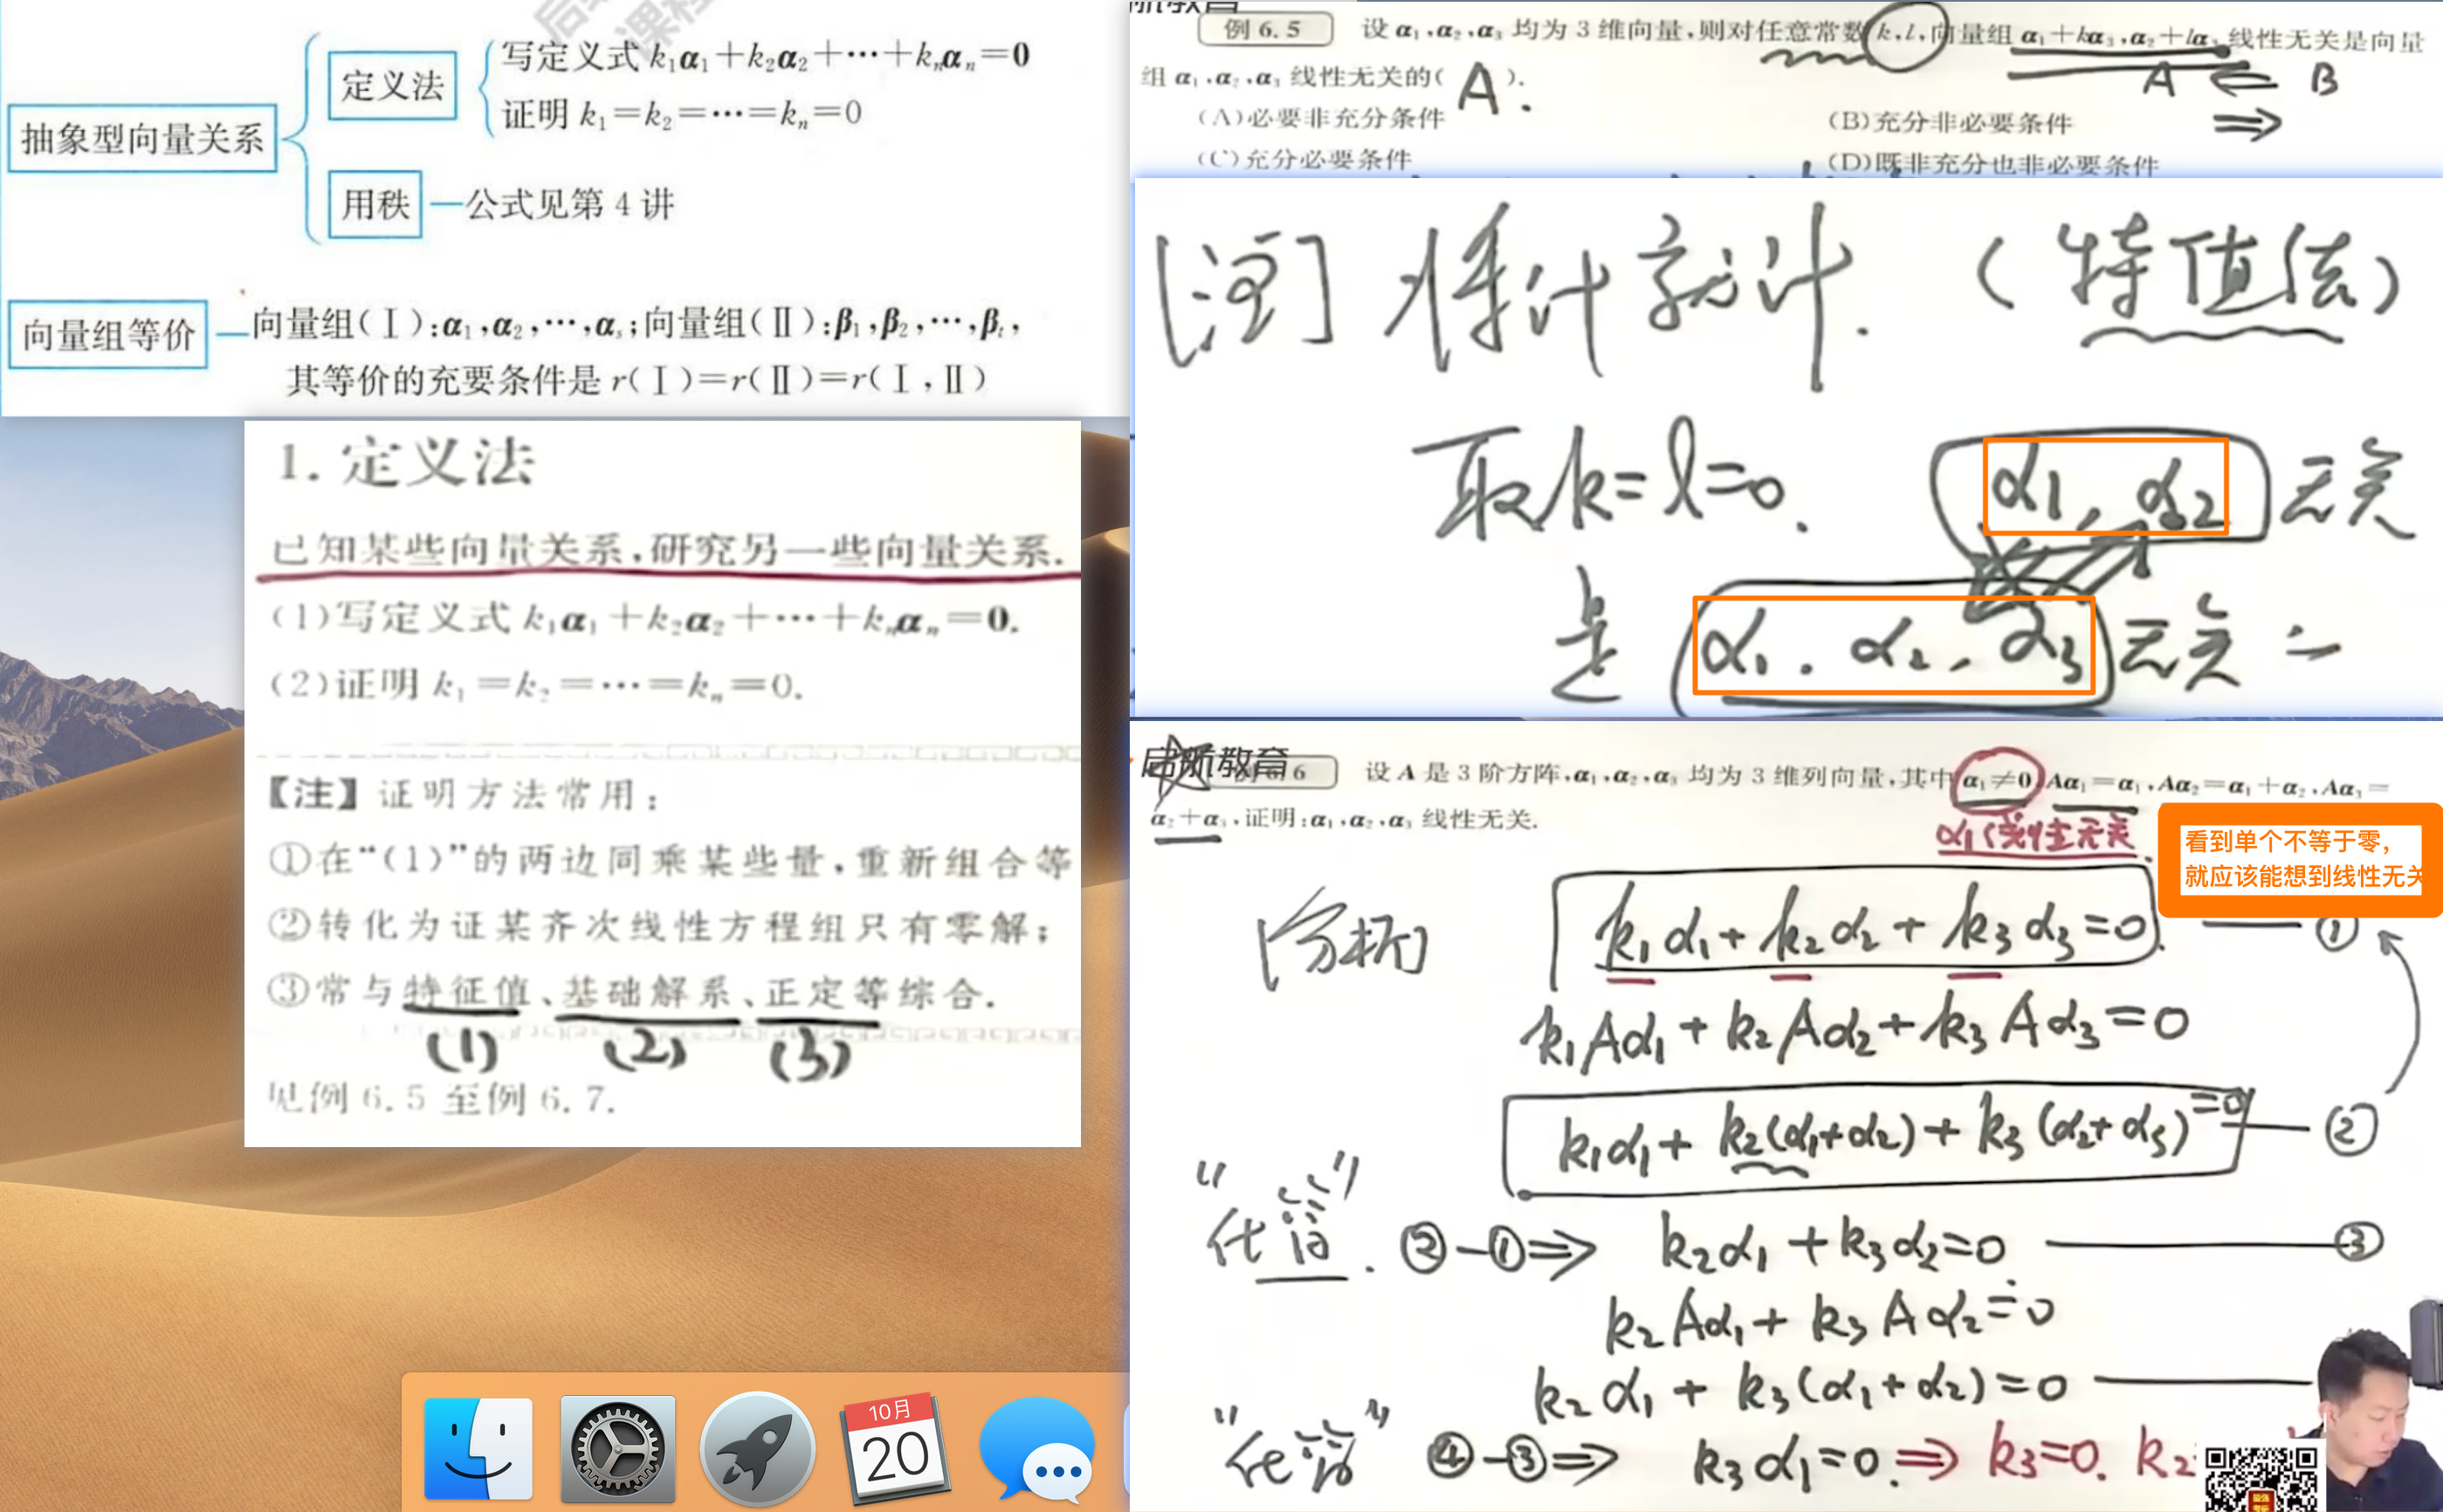 抽象型向量关系
定义法
写定义式 k₁α₁+k₂α₂+⋯+kₙαₙ=0
证明 k₁=k₂=⋯=kₙ=0
用秩
公式见第 4 讲
向量组等价
向量组(Ⅰ):α₁,α₂,⋯,αₛ;向量组(Ⅱ):β₁,β₂,⋯,βₜ,
其等价的充要条件是 r(Ⅰ)=r(Ⅱ)=r(Ⅰ,Ⅱ)
1. 定义法
已知某些向量关系,研究另一些向量关系.
(1)写定义式 k₁α₁+k₂α₂+⋯+kₙαₙ=0.
(2)证明 k₁=k₂=⋯=kₙ=0.
【注】证明方法常用:
①在“(1)”的两边同乘某些量,重新组合等
②转化为证某齐次线性方程组只有零解;
③常与特征值、基础解系、正定等综合.
(1) (2) (3)
见例 6.5 至例 6.7.
10月
20
例 6.5 设 α₁,α₂,α₃ 均为 3 维向量,则对任意常数 k,l,向量组 α₁+kα₃,α₂+lα₃ 线性无关是向量
组 α₁,α₂,α₃ 线性无关的( A ).
A ⇐ B
⇒
(A)必要非充分条件 (B)充分非必要条件
(C)充分必要条件 (D)既非充分也非必要条件
[注] 将计就计. (特值法)
取k=l=0. α₁, α₂ 无关
是 α₁. α₂, α₃ 无关
启航教育
例 6.6 设 A 是 3 阶方阵,α₁,α₂,α₃ 均为 3 维列向量,其中 α₁≠0,Aα₁=α₁,Aα₂=α₁+α₂,Aα₃=
α₂+α₃,证明:α₁,α₂,α₃ 线性无关.
α₁线性无关
看到单个不等于零,
就应该能想到线性无关
[分析] k₁α₁+k₂α₂+k₃α₃=0. ①
k₁Aα₁+k₂Aα₂+k₃Aα₃=0
k₁α₁+k₂(α₁+α₂)+k₃(α₂+α₃)=0 ②
②-①⇒ k₂α₁+k₃α₂=0 ③
k₂Aα₁+k₃Aα₂=0
k₂α₁+k₃(α₁+α₂)=0
④-③⇒ k₃α₁=0.⇒ k₃=0. k₂